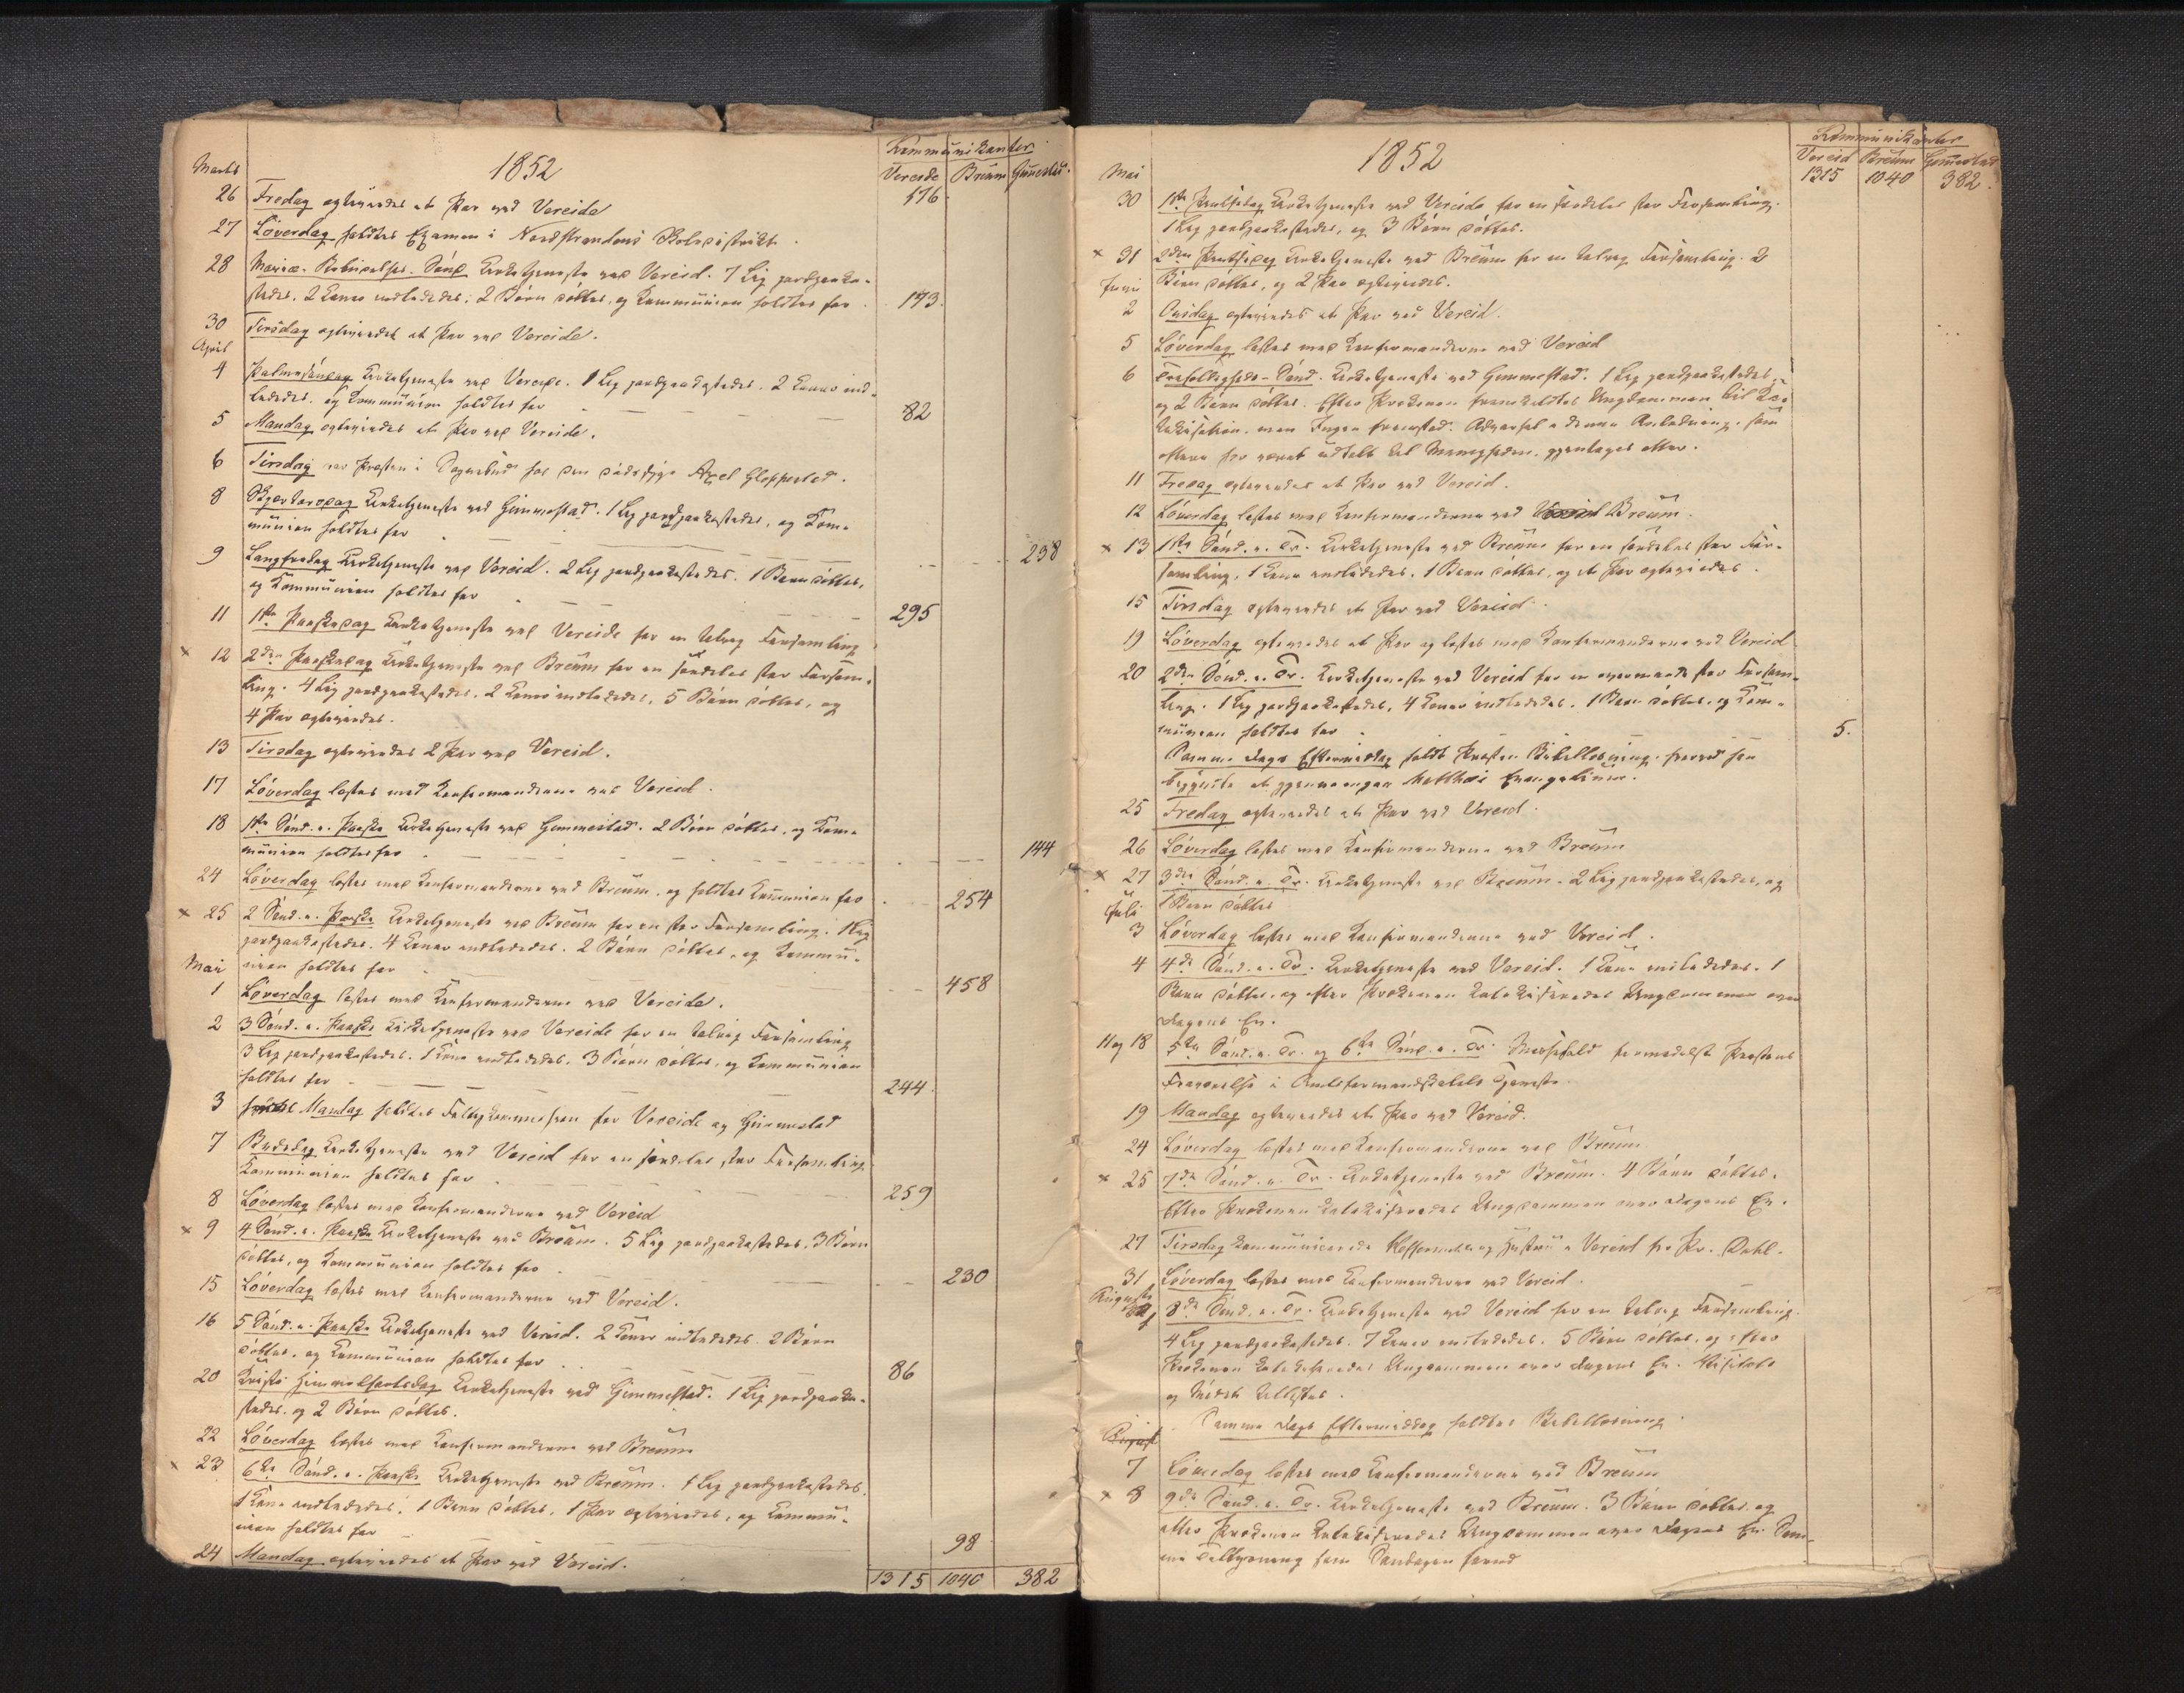 Marts
1852
Kommunikanter
Vereide Breum Gimmestad.
26 Fredag egteviedes et Par ved Vereide 176
27 Löverdag holdtes Examen i Nordstrandens Skoledistrikt.
28 Mariæ Bebudelses Sönd Kirketjeneste ved Vereid. 7 Lig jordpaaka-
stedes, 2 Koner indledede; 2 Börn döbtes, og Kommunion holdtes for 173.
30 Tirsdag egteviedes et Par ved Vereide.
April
4 Palmesöndag Kirketjeneste ved Vereide. 1 Lig jordpaakastedes. 2 Koner ind-
ledede. og Kommunion holdtes for 82
5 Mandag egteviedes et Par ved Vereide.
6 Tirsdag var Præsten i Sognebud hos den dödssyge Axel Gloppestad.
8 Skjertorsdag Kirketjeneste ved Gimmestad. 1 Lig jordpaakastedes, og Kom-
munion holdtes for 238
9 Langfredag Kirketjeneste ved Vereid. 2 Lig jordpaakastedes. 1 Barn döbtes,
og Kommunion holdtes for 295
11 1ste Paaskedag Kirketjeneste ved Vereide for en talrig Forsamling
x 12 2den Paaskedag Kirketjeneste ved Breum for en særdeles stor Forsam-
ling. 4 Lig jordpaakastedes. 2 Koner indledede, 5 Börn döbtes, og
4 Par egteviedes.
13 Tirsdag egteviedes 2 Par ved Vereid.
17 Löverdag læstes med Konfirmanderne ved Vereid.
18 1ste Sönd. e. Paaske Kirketjeneste ved Gimmestad. 2 Börn döbtes, og Kom-
munion holdtes for 144
24 Löverdag læstes med Konfirmanderne ved Breum. og holdtes Kommunion for 254
x 25 2 Sönd. e. Paaske Kirketjeneste ved Breum for en stor Forsamling. 1 Lig
jordpaakastedes. 4 Koner indledede. 2 Börn döbtes, og Kommu-
Mai nion holdtes for 458
1 Löverdag læstes med Konfirmanderne ved Vereide.
2 3 Sönd. e. Paaske Kirketjeneste ved Vereide for en talrig Forsamling
3 Lig jordpaakastedes. 1 Kone indlededes. 3 Börn döbtes, og Kommunion
holdtes for 244.
3 Mandag holdtes Fattigkommission for Vereide og Gimmestad
7 Bededag Kirketjeneste ved Vereid for en særdeles stor Forsamling
Kommunion holdtes for 259
8 Löverdag læstes med Konfirmanderne ved Vereid
x 9 4 Sönd. e. Paaske Kirketjeneste ved Breum. 5 Lig jordpaakastedes, 3 Börn
döbtes, og Kommunion holdtes for 230
15 Löverdag læstes med Konfirmanderne ved Vereid.
16 5 Sönd. e. Paaske Kirketjeneste ved Vereid. 2 Koner indledede. 2 Börn
döbtes. og Kommunion holdtes for 86
20 Kristi Himmelfartsdag Kirketjeneste ved Gimmestad. 1 Lig jordpaaka-
stedes. og 2 Börn döbtes.
22 Löverdag læstes med Konfirmanderne ved Breum
x 23 6te Sönd. e. Paaske Kirketjeneste ved Breum. 1 Lig jordpaakastedes.
1 Kone indlededes. 1 Barn döbtes. 1 Par egteviedes, og Kommu-
nion holdtes for 98
24 Mandag egteviedes et Par ved Vereid.
1315 1040 382
Mai
1852
Kommunikanter
Vereid Breum Gimmestad
1315 1040 382.
30 1ste Pintsedag Kirketjeneste ved Vereide for en særdeles stor Forsamling.
1 Lig jordpaakastedes, og 3 Börn döbtes.
x 31 2den Pintsedag Kirketjeneste ved Breum for en talrig Forsamling. 2
Juni Börn döbtes, og 2 Par egteviedes.
2 Onsdag egteviedes et Par ved Vereid.
5 Löverdag læstes med Konfirmanderne ved Vereid
6 Trefoldigheds-Sönd. Kirketjeneste ved Gimmestad. 1 Lig jordpaakastedes,
og 2 Börn döbtes. Efter Prækenen fremkaldtes Ungdommen til Ka-
tekisation. men Ingen fremstod. Advarsel i denne Anledning. som
oftere för været udtalt til Menigheden. gjentages atter.
11 Fredag egteviedes et Par ved Vereid.
12 Löverdag læstes med Konfirmanderne ved Breum.
x 13 1ste Sönd. e. Tr. Kirketjeneste ved Breum for en særdeles stor For-
samling. 1 Kone indlededes. 1 Barn döbtes, og et Par egteviedes.
15 Tirsdag egteviedes et Par ved Vereid.
19 Löverdag egteviedes et Par og læstes med Konfirmanderne ved Vereid
20 2den Sönd. e. Tr. Kirketjeneste ved Vereid for en overmaade stor Forsam-
ling. 1 Lig jordpaakastedes, 4 Koner indledede. 1 Barn döbtes, og Kom-
munion holdtes for 5.
Samme Dags Eftermiddag holdt Præsten Bibellæsning. hvorved han
begyndte at gjennemgaa Matthæi Evangelium.
25 Fredag egteviedes et Par ved Vereid.
26 Löverdag læstes med Konfirmanderne ved Breum
x 27 3die Sönd. e. Tr. Kirketjeneste ved Breum. 2 Lig jordpaakastedes, og
Juli 1 Barn döbtes
3 Löverdag læstes med Konfirmanderne ved Vereid.
4 4de Sönd. e. Tr. Kirketjeneste ved Vereid. 1 Kone indlededes. 1
Barn döbtes, og efter Prækenen katekiseredes Ungdommen over
Dagens Ev.
11 og 18 5te Sönd. e. Tr. og 6te Sönd. e. Tr. Messefald formedelst Præstens
Fraværelse i Amtsformandskabets Tjeneste.
19 Mandag egteviedes et Par ved Vereid.
24 Löverdag læstes med Konfirmanderne ved Breum
x 25 7de Sönd. e. Tr. Kirketjeneste ved Breum. 4 Börn döbtes.
Efter Prækenen katekiseredes Ungdommen over Dagens Ev.
27 Tirsdag kommunicerede og Hustru i Vereid fr. Pr. Dahl.
31 Löverdag læstes med Konfirmanderne ved Vereid.
August
1 8de Sönd. e. Tr. Kirketjeneste ved Vereid for en talrig Forsamling.
4 Lig jordpaakastedes. 7 Koner indledede. 5 Börn döbtes, og efter
Prækenen katekiseredes Ungdommen over Dagens Ev. Visitats
og Möde tillystes.
Samme Dags Eftermiddag holdtes Bibellæsning.
August
7 Löverdag læstes med Konfirmanderne ved Breum
x 8 9de Sönd. e. Tr. Kirketjeneste ved Breum. 3 Börn döbtes. og
efter Prækenen katekiseredes Ungdommen over Dagens Ev. Sam-
me Tillysning som Söndagen forud